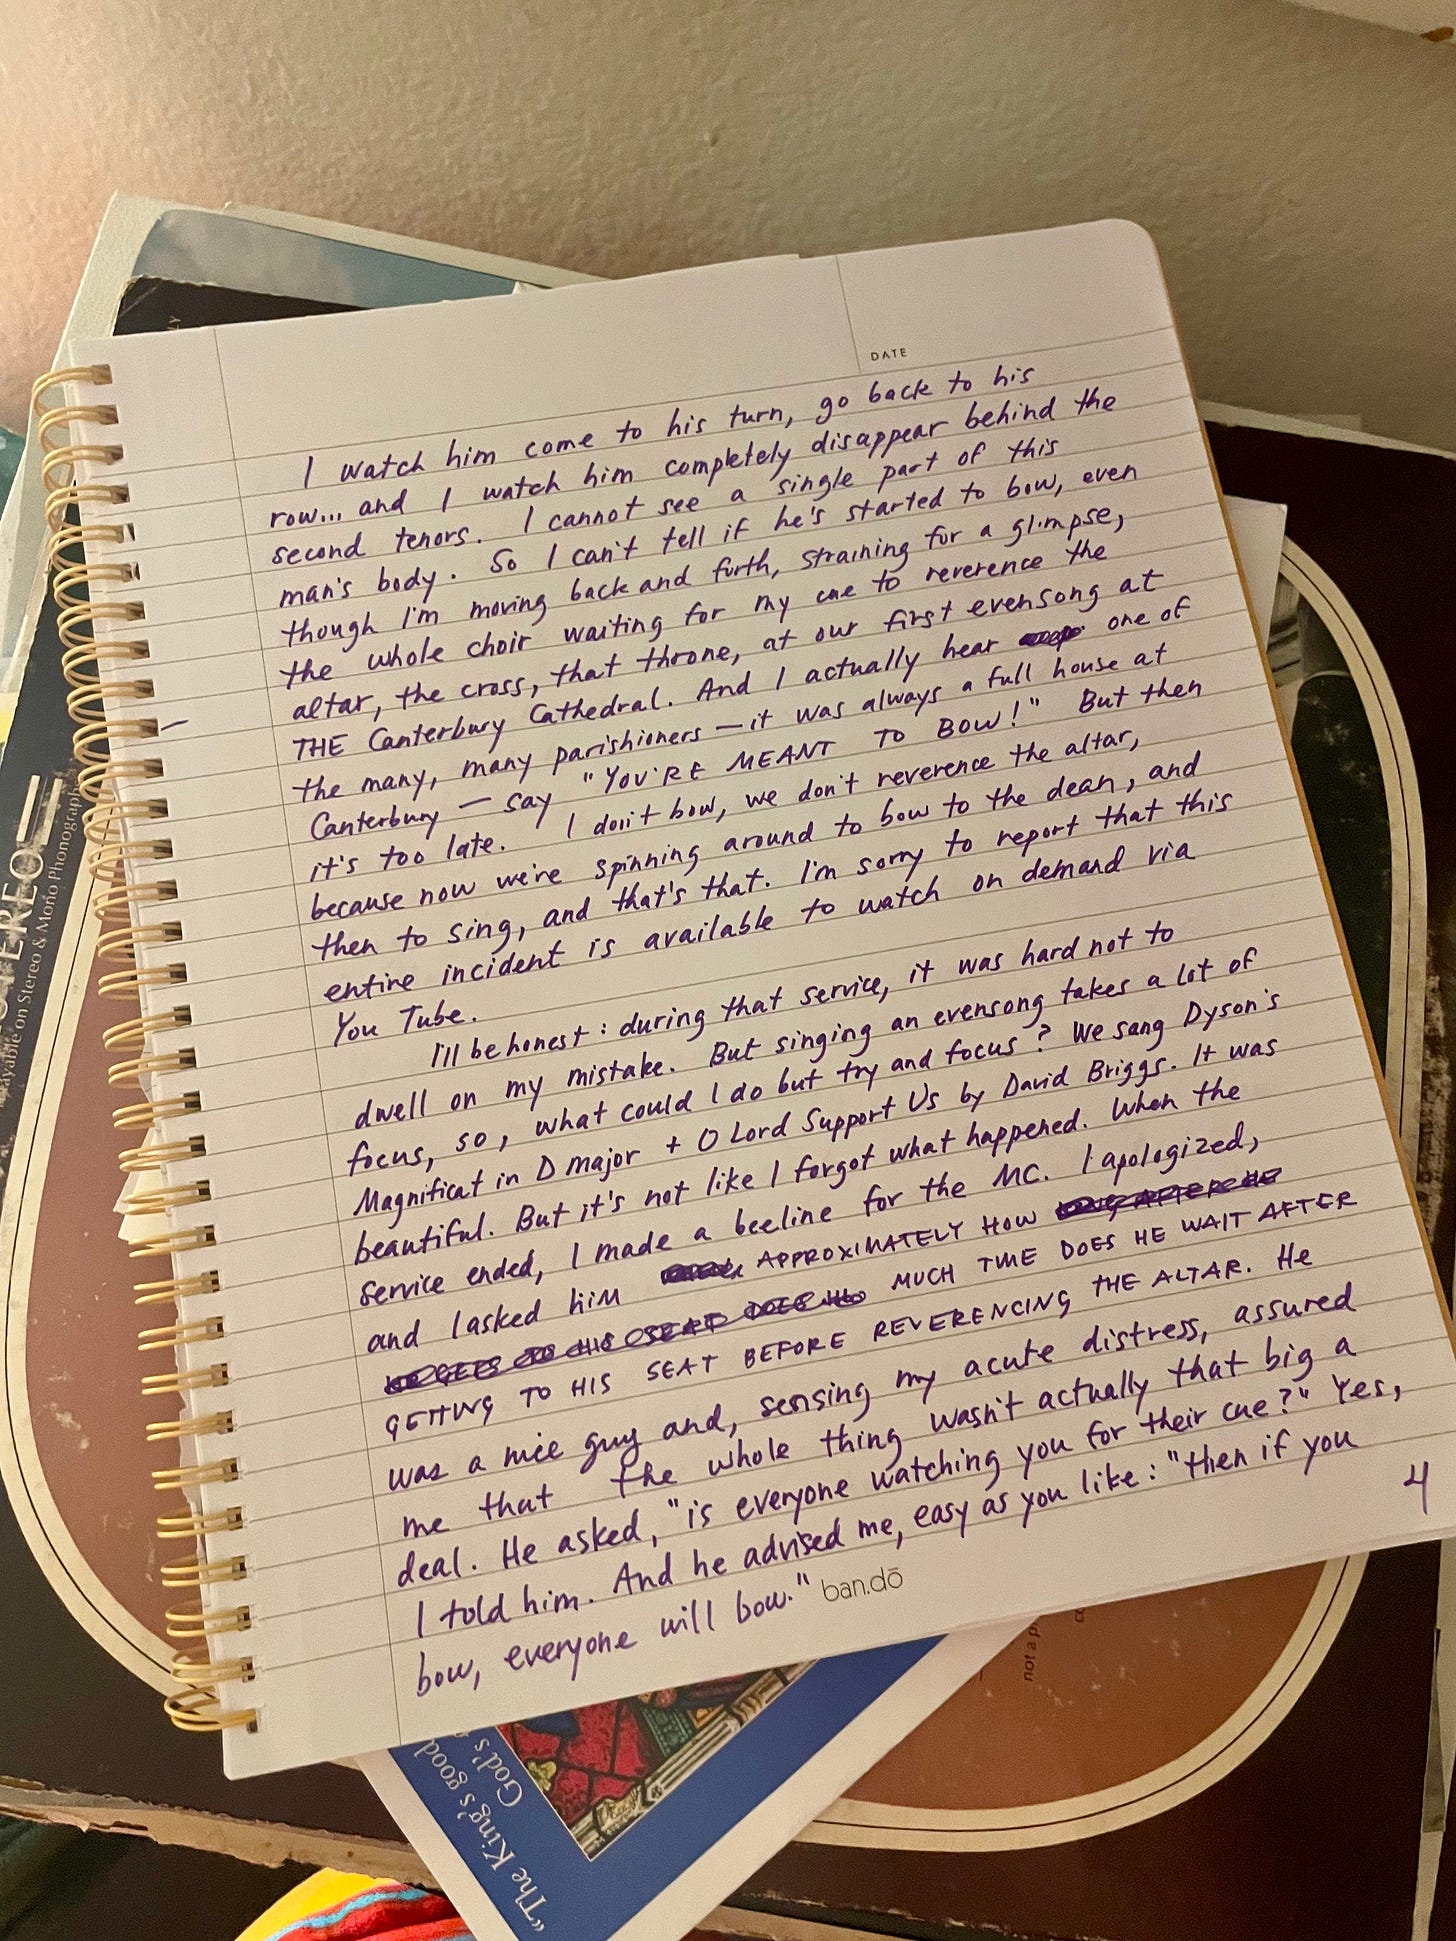 DATE
I watch him come to his turn, go back to his
row... and I watch him completely disappear behind the
second tenors. I cannot see a single part of this
man's body. So I can't tell if he's started to bow, even
though I'm moving back and furth, straining for a glimpse,
the whole choir waiting for my cue to reverence the
altar, the cross, that throne, at our first evensong at
THE Canterbury Cathedral. And I actually hear one of
the many, many parishioners — it was always a full house at
Canterbury — say "YOU'RE MEANT TO BOW!" But then
it's too late. I don't bow, we don't reverence the altar,
because now we're spinning around to bow to the dean, and
then to sing, and that's that. I'm sorry to report that this
entire incident is available to watch on demand via
You Tube.
I'll be honest: during that service, it was hard not to
dwell on my mistake. But singing an evensong takes a lot of
focus, so, what could I do but try and focus? We sang Dyson's
Magnificat in D major + O Lord Support Us by David Briggs. It was
beautiful. But it's not like I forgot what happened. When the
service ended, I made a beeline for the MC. I apologized,
and I asked him APPROXIMATELY HOW LONG AFTER HE
GETS TO HIS SEAT DOES HE MUCH TIME DOES HE WAIT AFTER
GETTING TO HIS SEAT BEFORE REVERENCING THE ALTAR. He
was a nice guy and, sensing my acute distress, assured
me that the whole thing wasn't actually that big a
deal. He asked, "is everyone watching you for their cue?" Yes,
I told him. And he advised me, easy as you like: "then if you
bow, everyone will bow."
4
ban.dō
ayable on Stereo & Mono Phonograph
"The King's good
God's
not a p